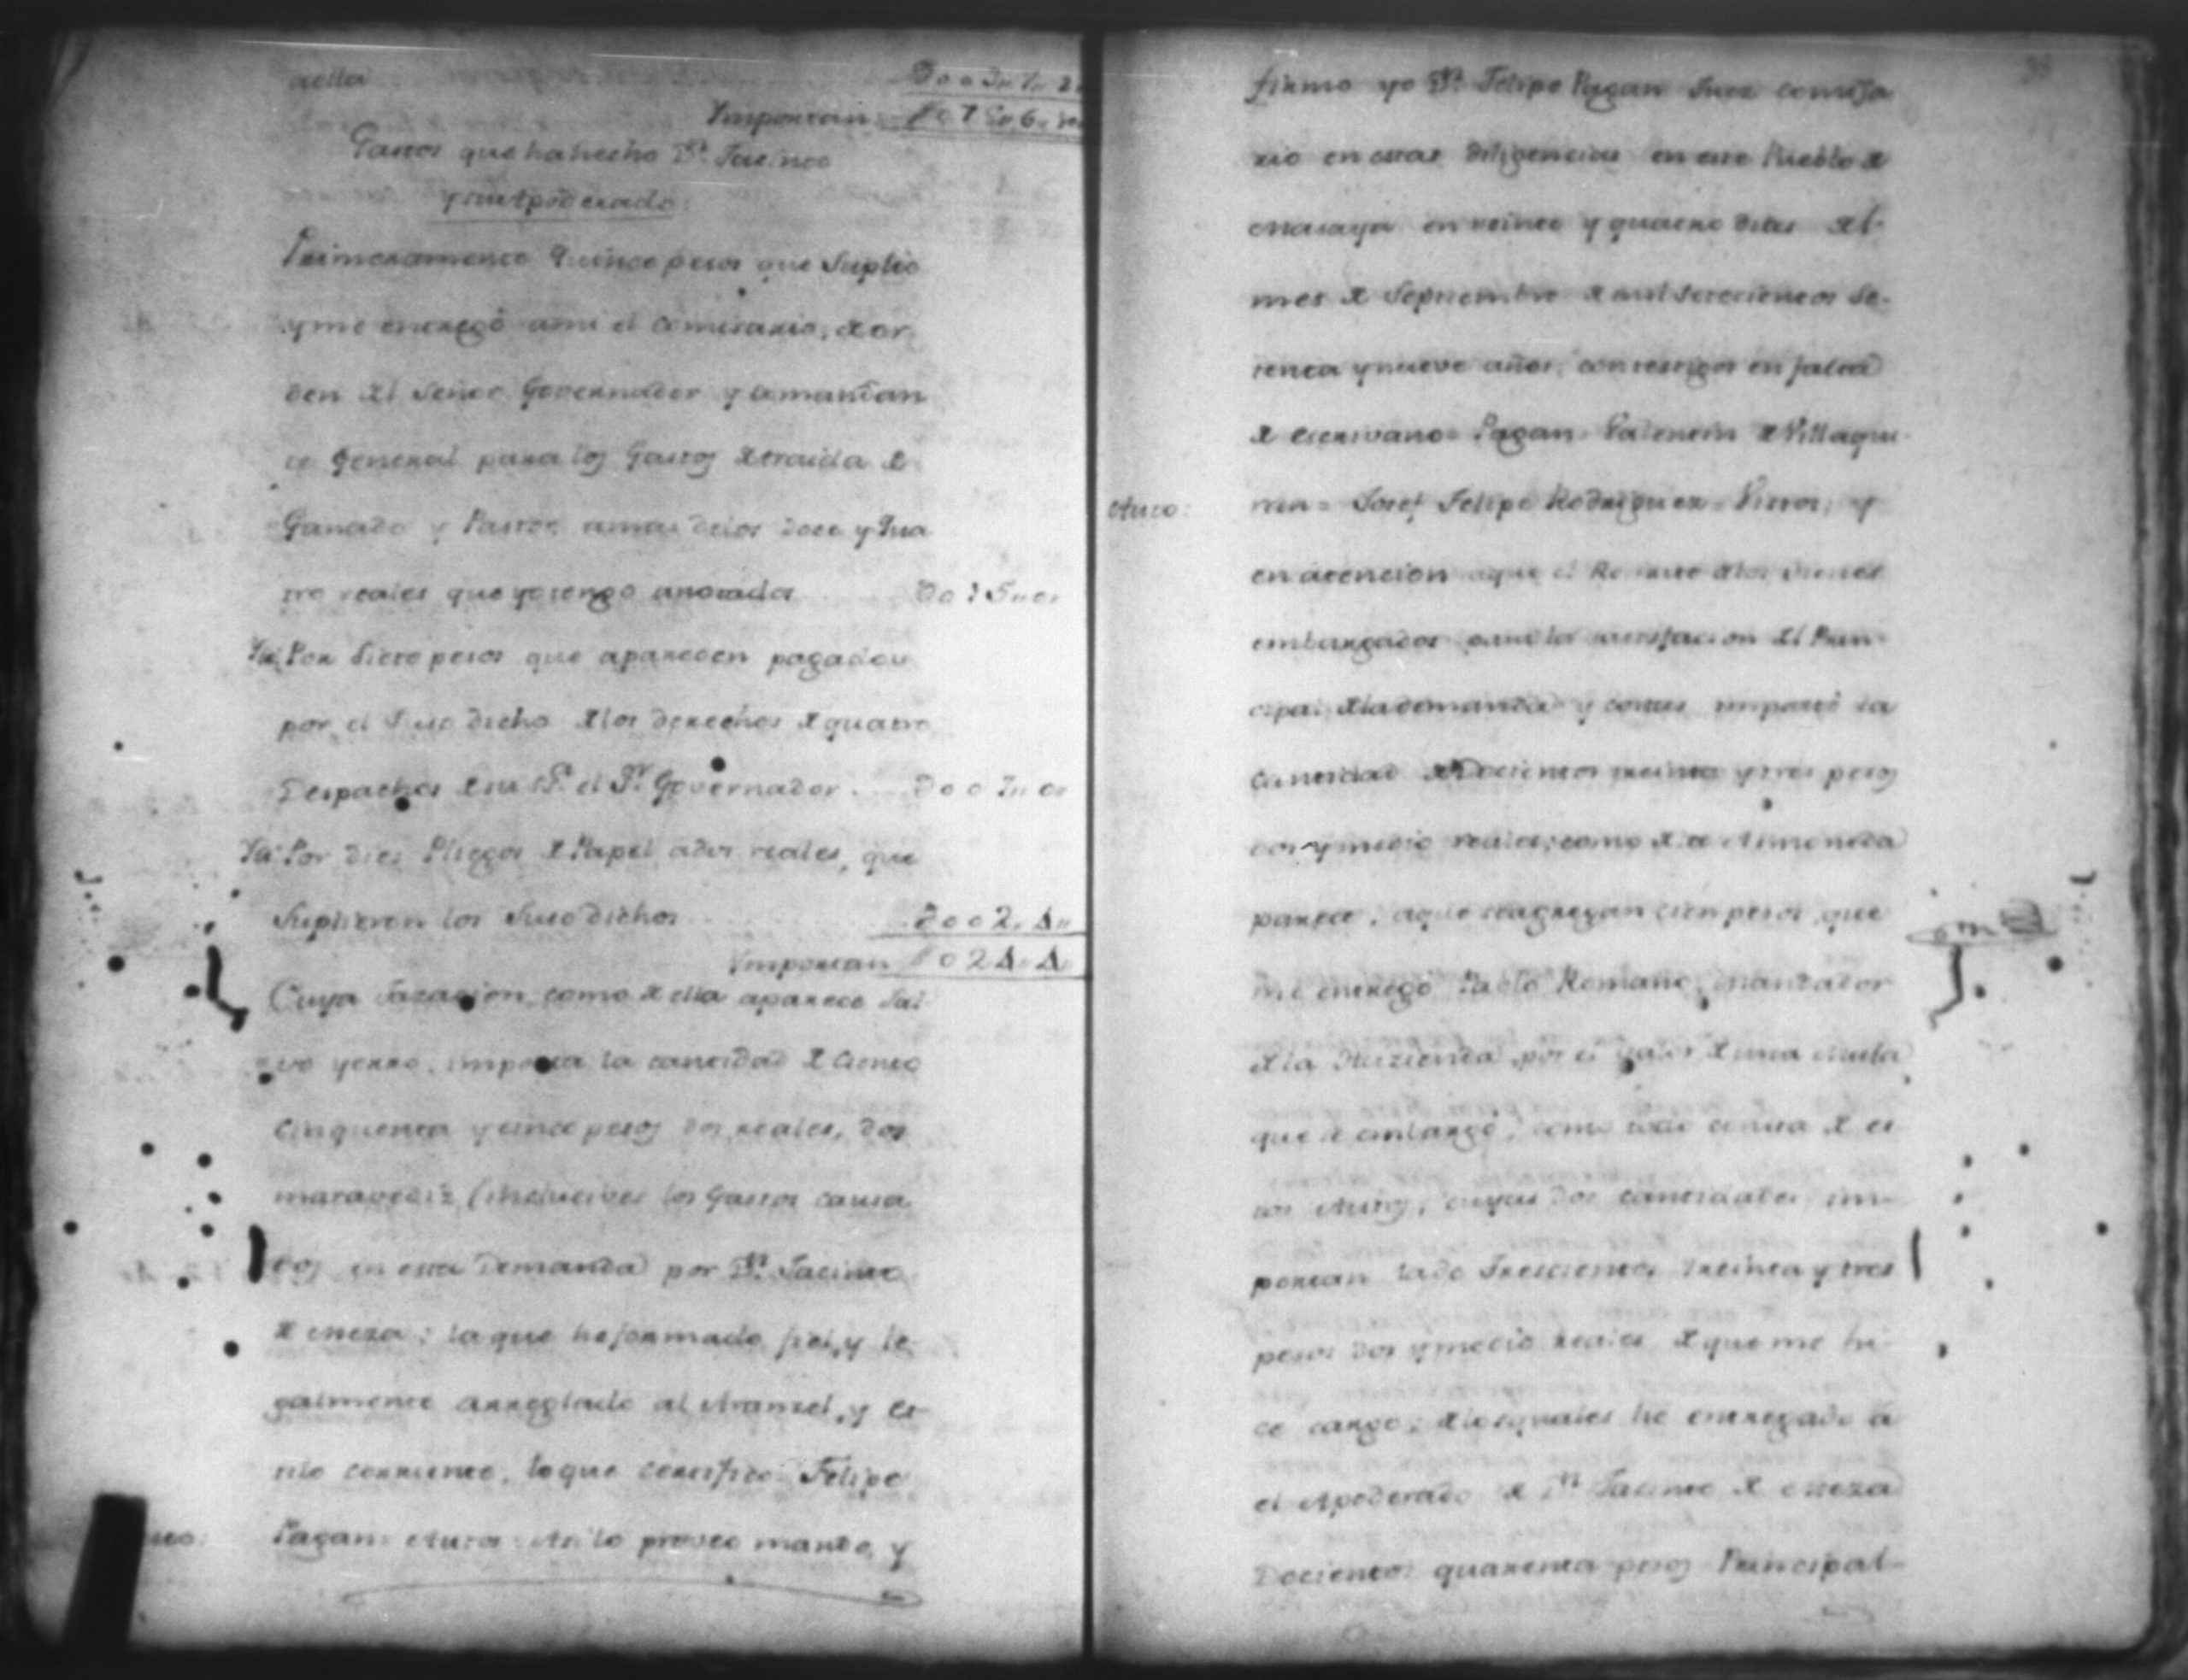 aella
Ymportan
Gastos que ha hecho Dn. Jacinto
y su Apoderado.
Primeramente Quince pesos que suplio
y me entregó a mi el Comisario, de or
den del Señor Governador y Comandan
te General para los Gastos de traida de
Ganado y Pastor, a mas de los doce y Qua
tro reales que yo tengo anotados
Yt. Por siete pesos que apareсen pagados
por el suso dicho de los derechos de quatro
Despachos de su Sa. el Sr. Governador
Yt. Por diez Pliegos de Papel a dos reales, que
suplieron los susodichos
Ymportan 024. 4.
Cuya Tazacion, como de ella aparece sal
vo yerro, importa la cantidad de Ciento
cinquenta y cinco pesos dos reales, dos
maravediz (inclucives los Gastos causa
dos en esta Demanda) por Dn. Jacinto
de Meza; la que he formado fiel, y le
galmente arreglado al Aranzel, y es
tilo corriente, lo que certifico Felipe
Pagan Asi lo proveo mando, y
firmo yo Dn. Felipe Pagan Juez comisa
rio en estas diligencias en este Pueblo de
Masaya en veinte y quatro dias del
mes de Septiembre de mil setecientos se-
tenta y nueve años, con testigos en falta
de escrivano= Pagan= Valentin de Villaqui
ran= Josef Felipe Rodriguez= Vistos, y
Auto:
en atencion a que el Remate de los vienes
embargados para la satisfacion del Prin-
cipal de la demanda y costas importó la
cantidad de Docientos treinta y tres pesos
dos y medio reales, como de la Almoneda
parece, a que se agregan cien pesos, que
me entregó Pablo Romano, mandador
de la Hazienda, por el valor de una mula
que se embargó, como todo consta de es
tos Autos, cuyas dos cantidades im-
portan todo Trescientos treinta y tres
pesos dos y medio reales de que me hi-
ce cargo; de los quales he entregado a
el Apoderado de Dn. Jacinto de Meza
Docientos quarenta pesos Principal-